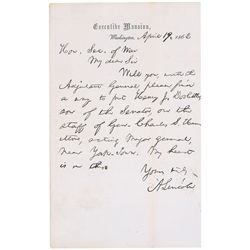 Executive Mansion,
Washington, April 19, 1862
Hon. Sec. of War
My dear Sir
Will you, with the
Adjutant General please find
a way to put Henry J. Doolittle
son of the Senator, on the
staff of Gen. Charles S. Ham
ilton, acting Major General,
near York-Town. My heart
is in this
Yours truly
A. Lincoln